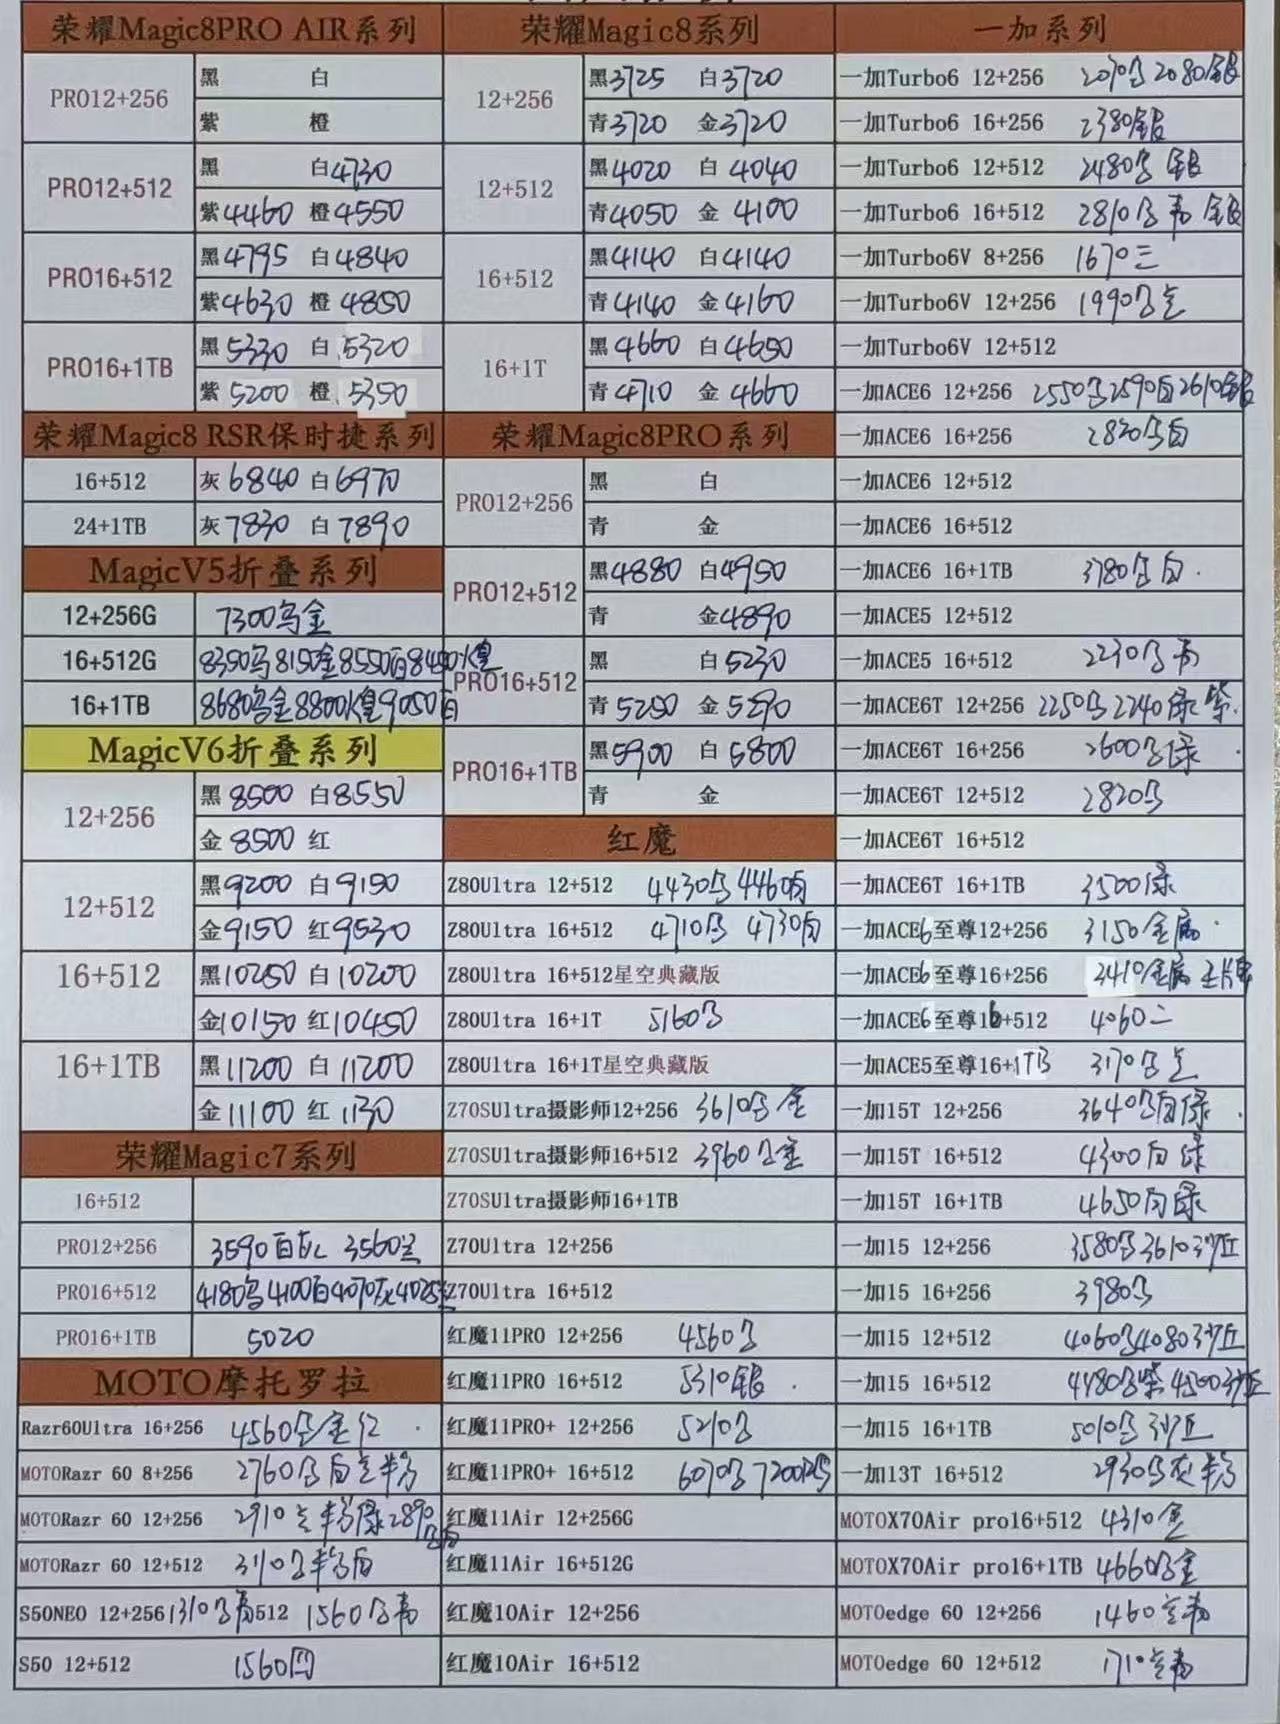 荣耀Magic8PRO AIR系列
PRO12+256
黑 白
紫 橙
PRO12+512
黑 白4730
紫4460 橙4550
PRO16+512
黑4795 白4840
紫4630 橙4850
PRO16+1TB
黑5330 白5320
紫5200 橙5350
荣耀Magic8 RSR保时捷系列
16+512 灰6840 白6970
24+1TB 灰7830 白7890
MagicV5折叠系列
12+256G 7300乌金
16+512G 8350乌8150金8550白
16+1TB 8680乌金8800煌9050白
MagicV6折叠系列
12+256
黑8500 白8550
金8500 红
12+512
黑9200 白9150
金9150 红9530
16+512
黑10250 白10200
金10150 红10450
16+1TB
黑11200 白11200
金11100 红1130
荣耀Magic7系列
16+512
PRO12+256 3590白灰 3560兰
PRO16+512 4180乌4100白4070灰
PRO16+1TB 5020
MOTO摩托罗拉
Razr60Ultra 16+256 4560乌金红
MOTORazr 60 8+256 2760乌白
MOTORazr 60 12+256 2910
MOTORazr 60 12+512
S50NEO 12+256 1310乌 512 1560乌
S50 12+512 1560
荣耀Magic8系列
12+256
黑3725 白3720
青3720 金3720
12+512
黑4020 白4040
青4050 金4100
16+512
黑4140 白4140
青4140 金4160
16+1T
黑4660 白4650
青4710 金4660
荣耀Magic8PRO系列
PRO12+256
黑 白
青 金
PRO12+512
黑4880 白4950
青 金4890
PRO16+512
黑 白5230
青5250 金5290
PRO16+1TB
黑5900 白5800
青 金
红魔
Z80Ultra 12+512 4430乌4460白
Z80Ultra 16+512 4710乌 4730白
Z80Ultra 16+512星空典藏版
Z80Ultra 16+1T 5160乌
Z80Ultra 16+1T星空典藏版
Z70SUltra摄影师12+256 3610乌金
Z70SUltra摄影师16+512 3960乌金
Z70SUltra摄影师16+1TB
Z70Ultra 12+256
Z70Ultra 16+512
红魔11PRO 12+256 4560乌
红魔11PRO 16+512 5310银
红魔11PRO+ 12+256 5210乌
红魔11PRO+ 16+512 6070乌7200
红魔11Air 12+256G
红魔11Air 16+512G
红魔10Air 12+256
红魔10Air 16+512
一加系列
一加Turbo6 12+256 2070乌2080银
一加Turbo6 16+256 2380银
一加Turbo6 12+512 2480乌 银
一加Turbo6 16+512 2810乌 银
一加Turbo6V 8+256 1670三
一加Turbo6V 12+256 1990乌
一加Turbo6V 12+512
一加ACE6 12+256 2550乌2590白2610银
一加ACE6 16+256 2820乌白
一加ACE6 12+512
一加ACE6 16+512
一加ACE6 16+1TB 3780乌白
一加ACE5 12+512
一加ACE5 16+512 2230乌
一加ACE6T 12+256 2250乌2240绿紫
一加ACE6T 16+256 2600乌绿
一加ACE6T 12+512 2820乌
一加ACE6T 16+512
一加ACE6T 16+1TB 3500绿
一加ACE6至尊12+256 3150金属
一加ACE6至尊16+256 3410金属
一加ACE6至尊16+512 4060二
一加ACE5至尊16+1TB 3170乌
一加15T 12+256 3640乌白绿
一加15T 16+512 4300白绿
一加15T 16+1TB 4650白绿
一加15 12+256 3580乌3610沙丘
一加15 16+256 3980乌
一加15 12+512 4060乌4080沙丘
一加15 16+512 4480乌紫4500沙丘
一加15 16+1TB 5010乌沙丘
一加13T 16+512 2930乌灰
MOTOX70Air pro16+512 4310金
MOTOX70Air pro16+1TB 4660乌金
MOTOedge 60 12+256 1460
MOTOedge 60 12+512 1710